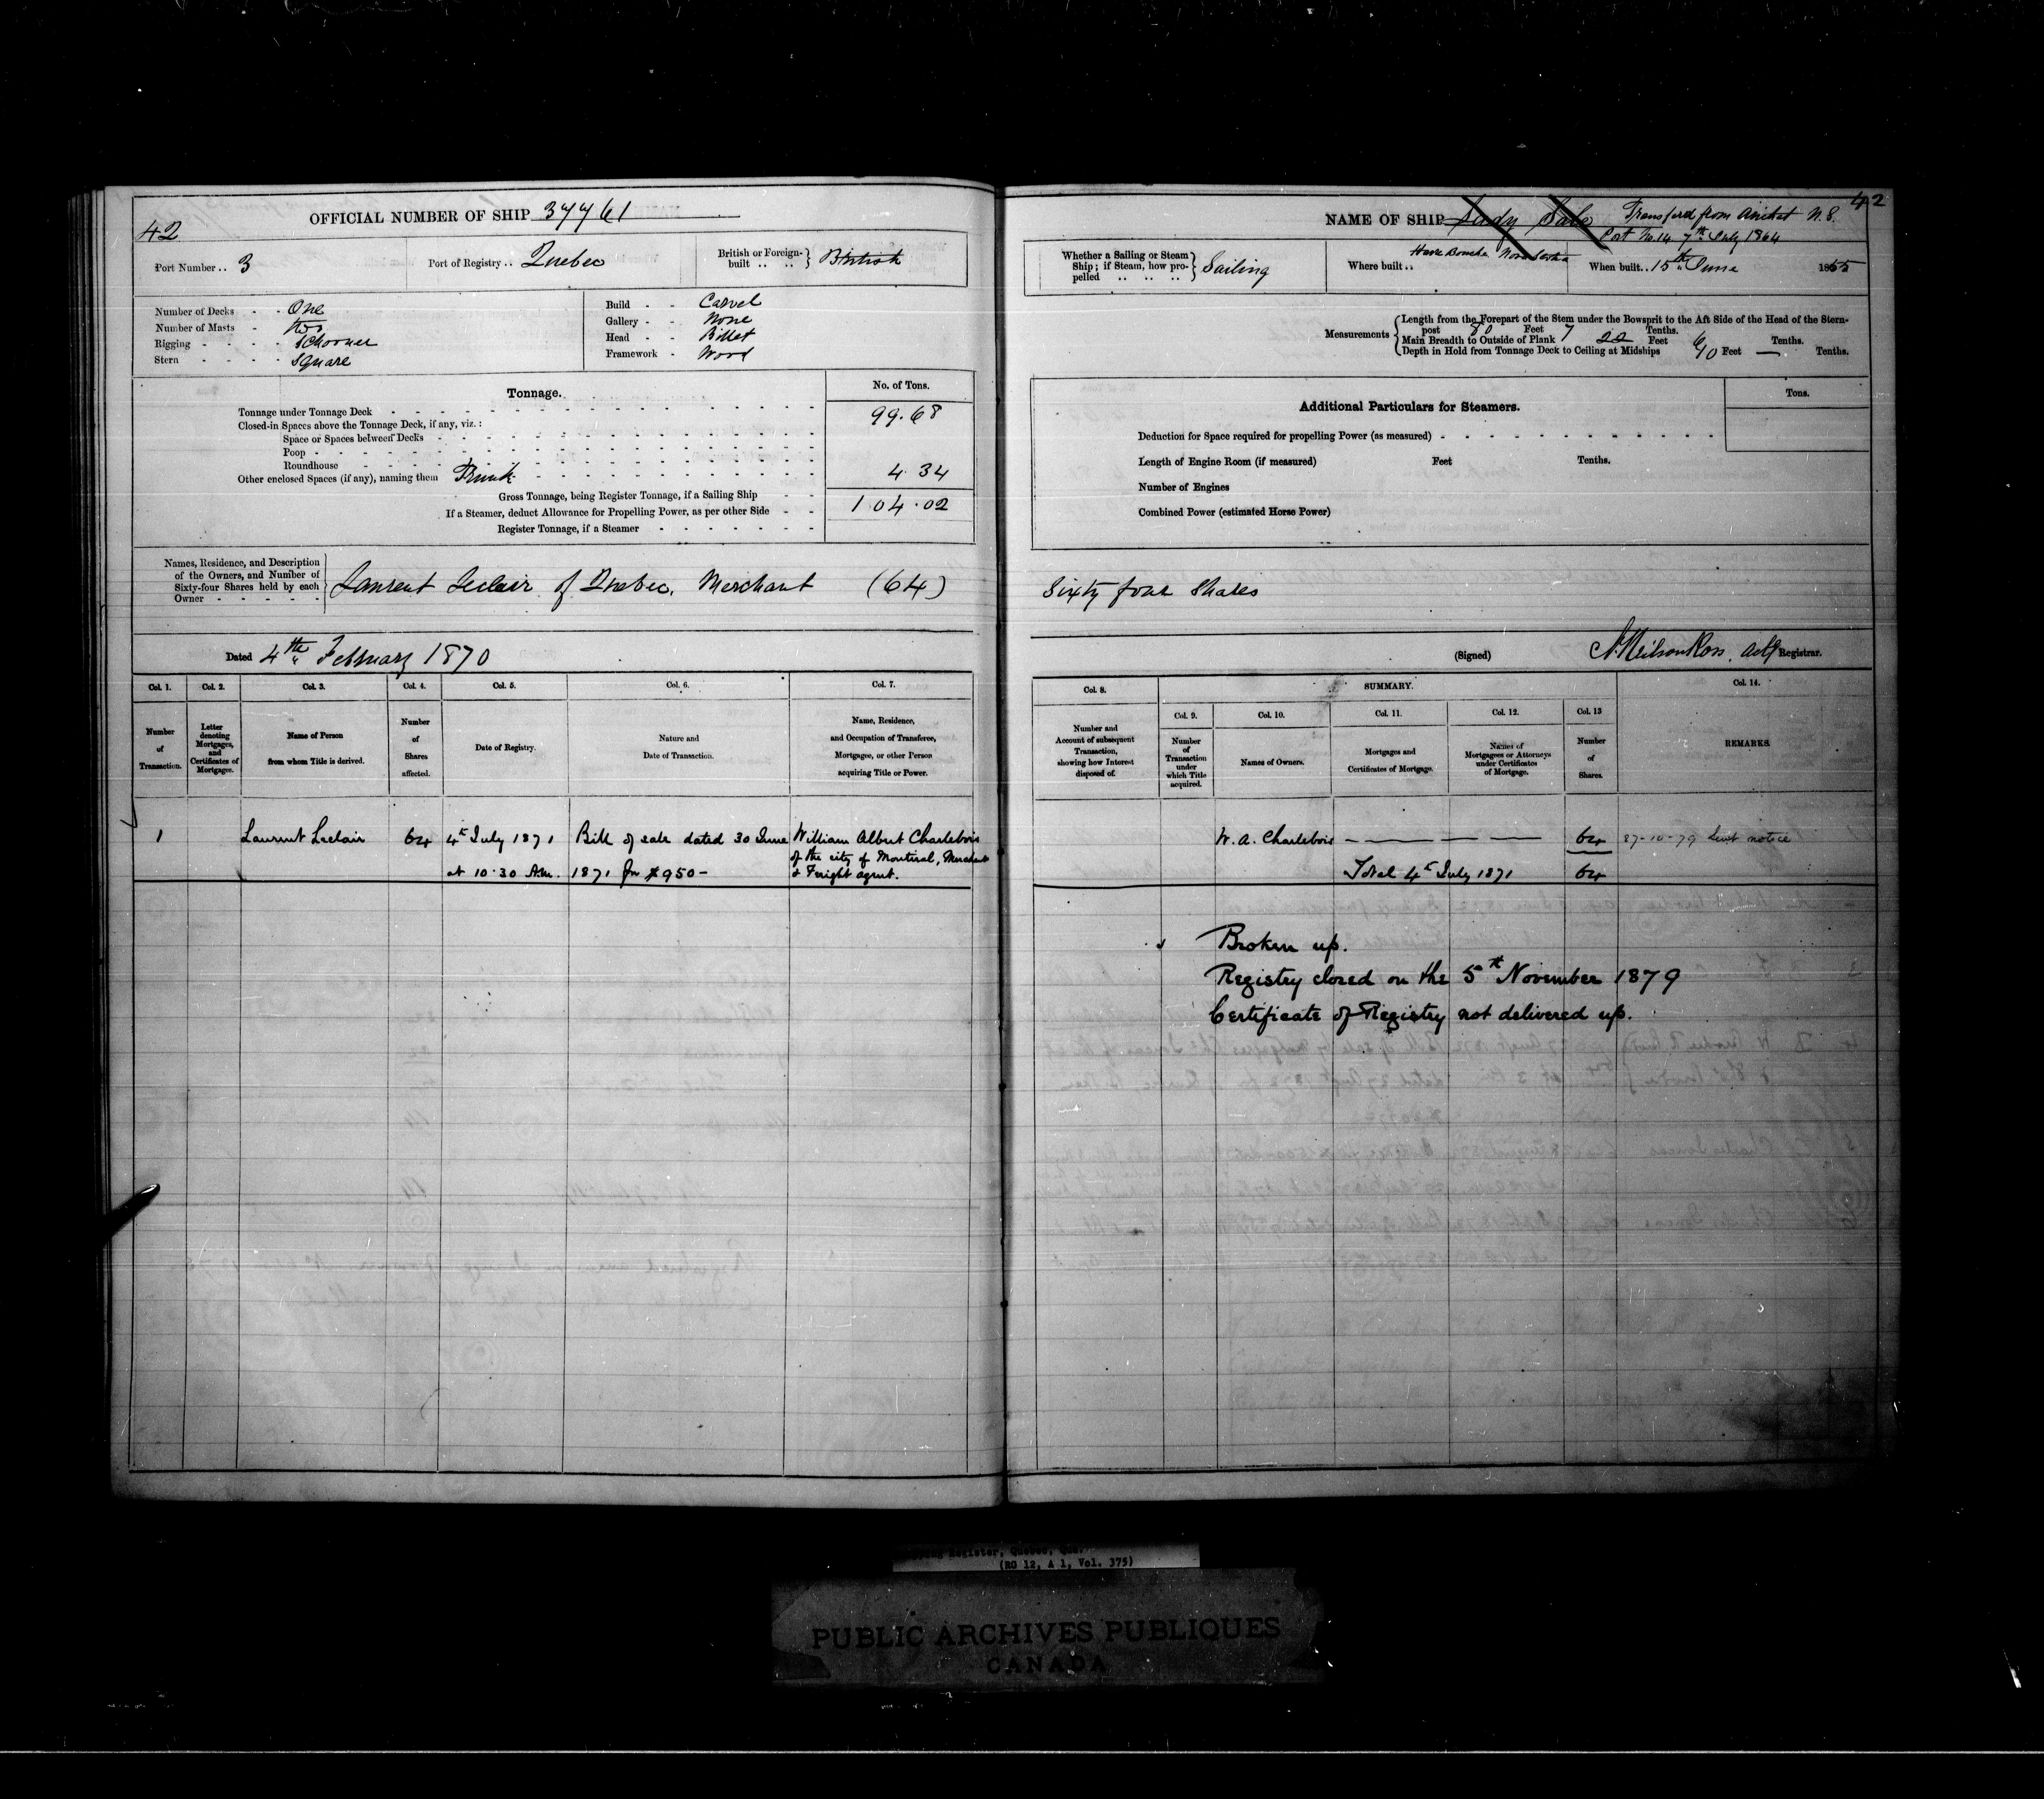 42
OFFICIAL NUMBER OF SHIP 37761
Port Number .. 3
Port of Registry .. Quebec
British or Foreign-built .. .. } British
Number of Decks - - One
Number of Masts - Two
Rigging - - - - Schooner
Stern - - - - Square
Build - - Carvel
Gallery - - None
Head - - Billet
Framework - Wood
Tonnage.
No. of Tons.
Tonnage under Tonnage Deck 99.68
Closed-in Spaces above the Tonnage Deck, if any, viz.:
Space or Spaces between Decks
Poop
Roundhouse
Other enclosed Spaces (if any), naming them Trunk 4.34
Gross Tonnage, being Register Tonnage, if a Sailing Ship
104.02
If a Steamer, deduct Allowance for Propelling Power, as per other Side
Register Tonnage, if a Steamer
Names, Residence, and Description
of the Owners, and Number of
Sixty-four Shares held by each
Owner
Laurent Leclair of Quebec, Merchant (64)
Dated 4th February 1870
Col. 1. Col. 2. Col. 3. Col. 4. Col. 5. Col. 6. Col. 7.
Number of Transaction.
Letter denoting Mortgages, and Certificates of Mortgage.
Name of Person from whom Title is derived.
Number of Shares affected.
Date of Registry.
Nature and Date of Transaction.
Name, Residence, and Occupation of Transferee, Mortgagee, or other Person acquiring Title or Power.
1 Laurent Leclair 64 4th July 1871 Bill of sale dated 30 June William Albert Charlebois
of the city of Montreal, Merchant
at 10.30 A.m. 1871 for $950- & Freight agent.
42
NAME OF SHIP Lady Transferd from Arichat N.S.
Port No. 14 7th July 1864
Whether a Sailing or Steam Ship; if Steam, how propelled .. .. .. } Sailing
Where built .. Havre Bouche Nova Scotia
When built .. 15th June 1865
Measurements
Length from the Forepart of the Stem under the Bowsprit to the Aft Side of the Head of the Stern-
post 80 Feet 7 Tenths.
Main Breadth to Outside of Plank 22 Feet 6 Tenths.
Depth in Hold from Tonnage Deck to Ceiling at Midships 10 Feet — Tenths.
Additional Particulars for Steamers.
Tons.
Deduction for Space required for propelling Power (as measured)
Length of Engine Room (if measured) Feet Tenths.
Number of Engines
Combined Power (estimated Horse Power)
Sixty four Shares
(Signed) Neilson Ross, Actg Registrar.
Col. 8. SUMMARY. Col. 14.
Col. 9. Col. 10. Col. 11. Col. 12. Col. 13
Number and Account of subsequent Transaction, showing how Interest disposed of.
Number of Transaction under which Title acquired.
Names of Owners.
Mortgages and Certificates of Mortgage.
Names of Mortgagees or Attorneys under Certificates of Mortgage.
Number of Shares.
REMARKS.
W. A. Charlebois — — — 64 27-10-79 Sent notice
Total 4th July 1871 64
Broken up.
Registry closed on the 5th November 1879
Certificate of Registry not delivered up.
Register, Quebec, Que.
(RG 12, A 1, Vol. 375)
PUBLIC ARCHIVES PUBLIQUES
CANADA